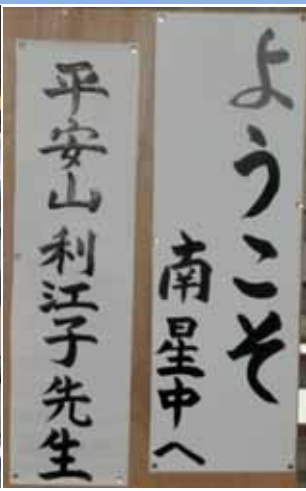 ようこそ
南星中へ
平安山利江子先生